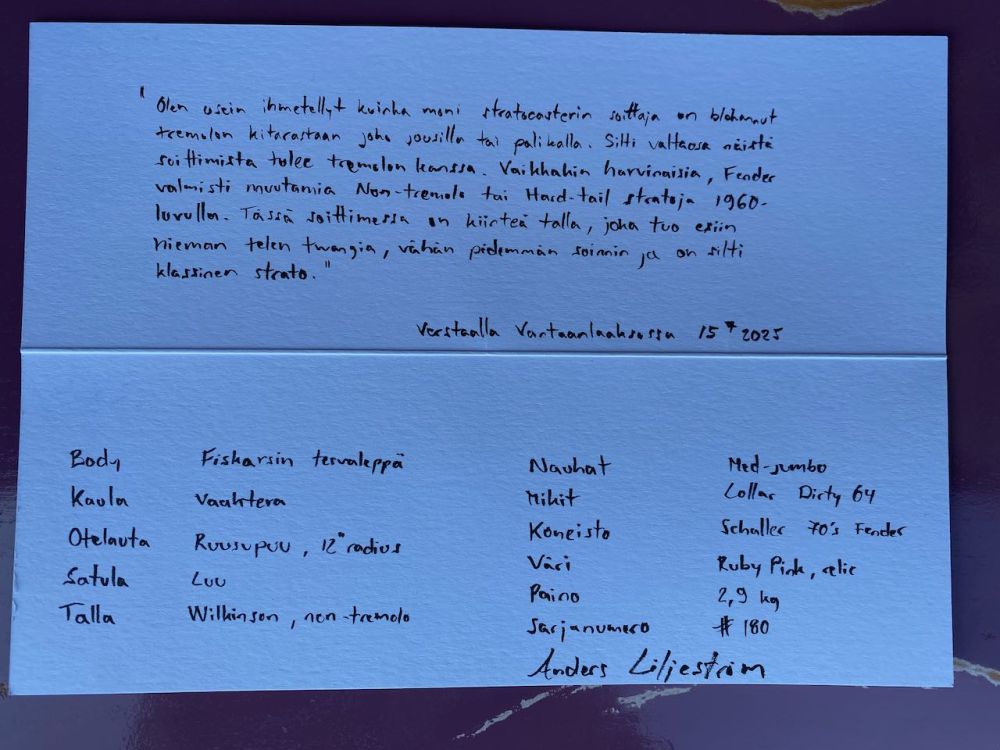 " Olen usein ihmetellyt kuinka moni stratocasterin soittaja on blokannut
tremolon kitarastaan joko jousilla tai palikalla. Silti valtaosa näistä
soittimista tulee tremolon kanssa. Vaikkakin harvinaisia, Fender
valmisti muutamia Non-tremolo tai Hard-tail stratoja 1960-
luvulla. Tässä soittimessa on kiinteä talla, joka tuo esiin
hieman telen twangia, vähän pidemmän soinnin ja on silti
klassinen strato."
Verstaalla Vantaanlaaksossa 15 2025
Body Fiskarsin tervaleppä
Kaula Vaahtera
Otelauta Ruusupuu, 12" radius
Satula Luu
Talla Wilkinson, non-tremolo
Nauhat Med-jumbo
Mikit Lollar Dirty 64
Koneisto Schaller 70's Fender
Väri Ruby Pink, relic
Paino 2,9 kg
Sarjanumero # 180
Anders Liljeström